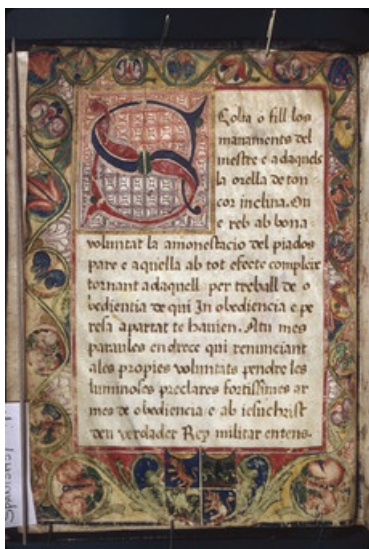 Scolta o fill los
manaments del
mestre e adaquels
la orella de ton
cor inclina. On
e reb ab bona
voluntat la amonestacio del piados
pare e aquella ab tot efecte compleix
tornant adaquell per treball de o
bedientia de qui In obediencia e pe
resa apartat te havien. Atu mes
paraules endrece qui renunciant
ales propies voluntats pendre les
luminoses preclares fortissimes ar
mes de obediencia e ab iesuchrist
deu verdader Rey militar entens.